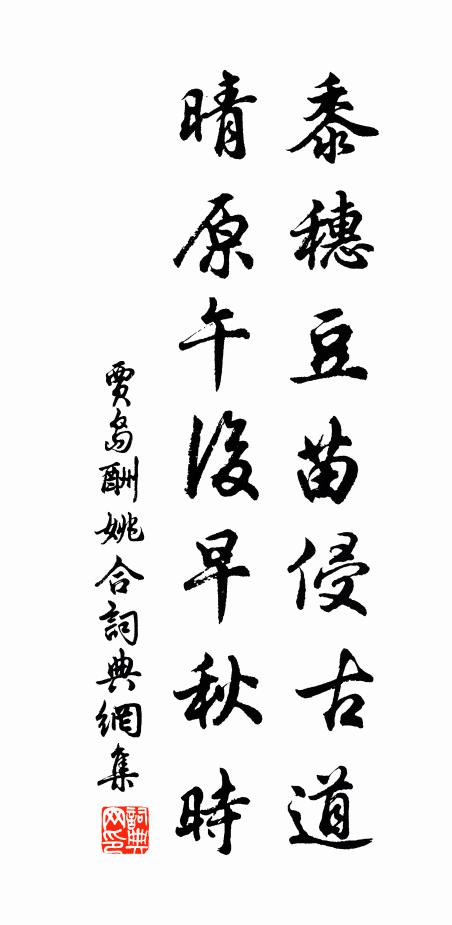 黍穗豆苗侵古道
晴原午後早秋時
賈島酬姚合詞典網集
詞典
网印